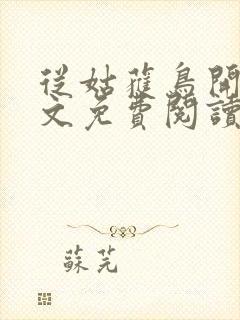 從姑獲鳥開
文免費閱讀
蘇芫